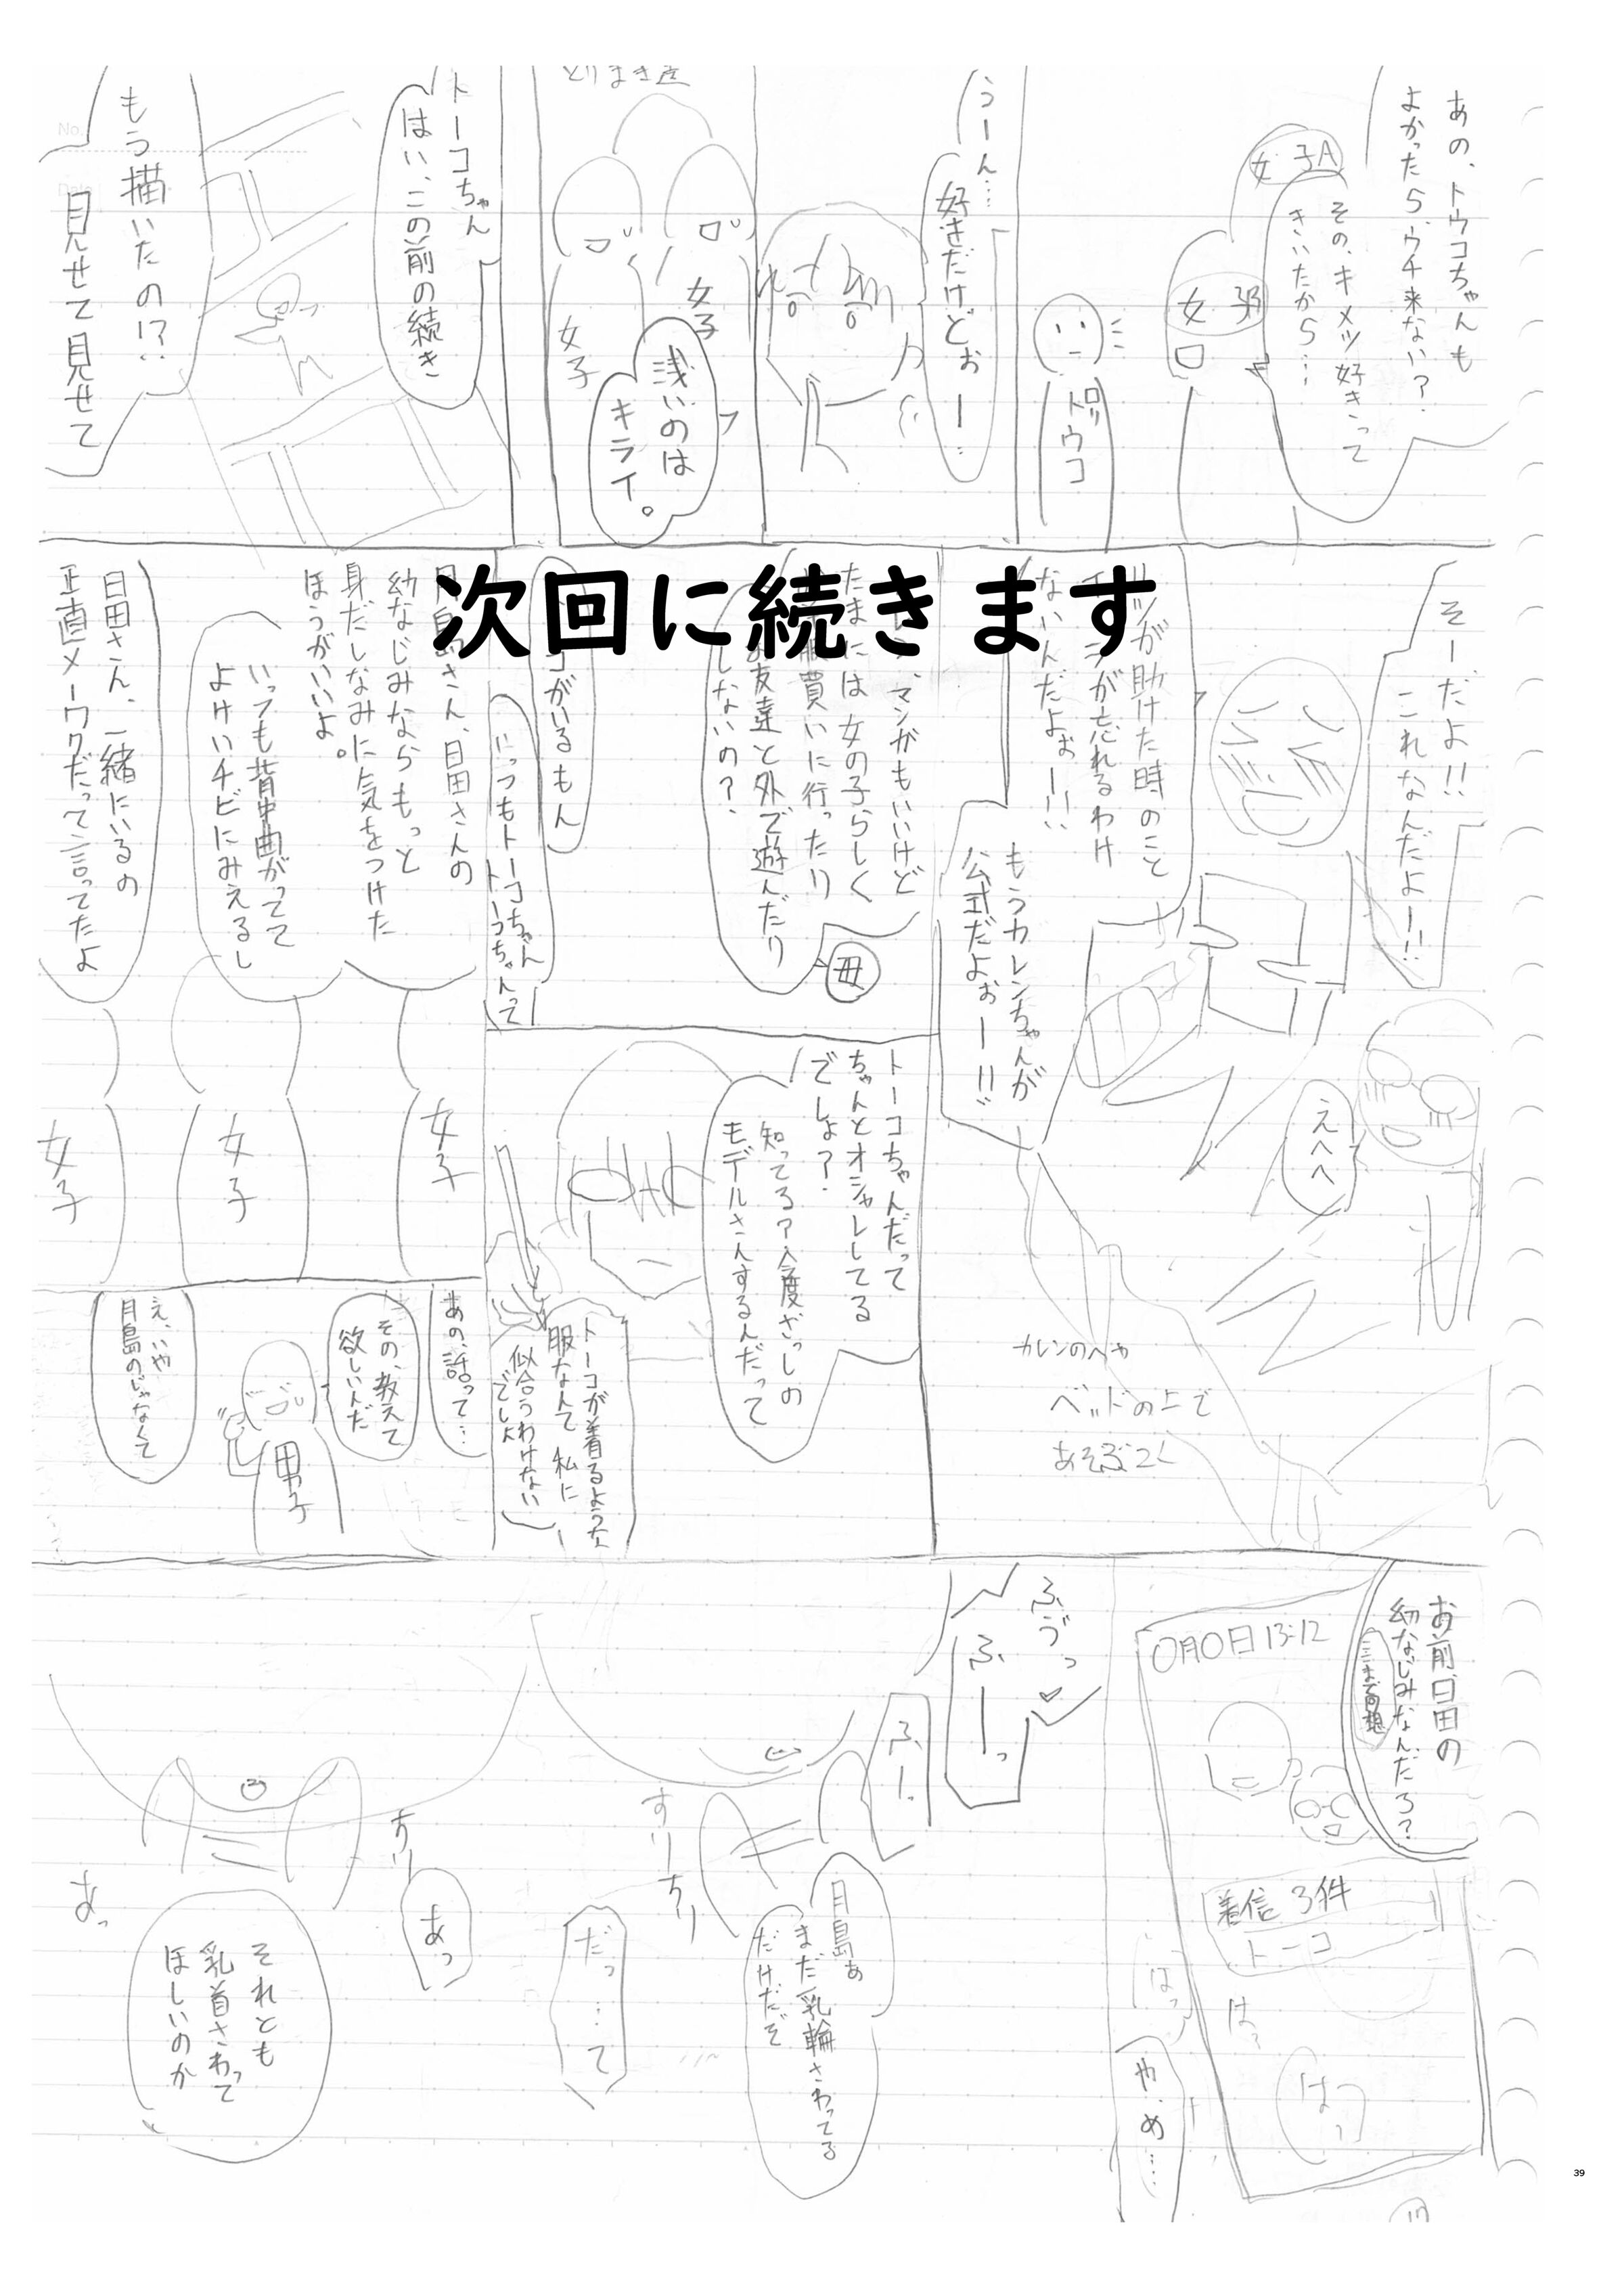 あの、トウコちゃんも
よかったら、ウチ来ない?
その、キメツ好きって
きいたから…
女子A
女子B
トウコ
うーん…
好きだけどぉー…
とりまき達
女子
女子
浅いのは
キライ。
トーコちゃん
はい、この前の続き
もう描いたの!?
見せて見せて
次回に続きます
そーだよ!!
これなんだよー!!
が助けた時のこと
が忘れるわけ
ないんだよぉー!!
もうカレンちゃんが
公式だよぉー!!
えへへ
カレンのへや
ベッドの上で
マンガもいいけど
たまには女の子らしく
買いに行ったり
友達と外で遊んだり
しないの?
母
コがいるもん
いっつもトーコちゃん
トーコちゃんって
トーコちゃんだって
ちゃんとオシャレしてる
でしょ?
知ってる?今度ざっしの
モデルさんするんだって
トーコが着るような
服なんて私に
似合うわけない
でしょ
さん、日田さんの
幼なじみならもっと
身だしなみに気をつけた
ほうがいいよ。
いっつも背中曲がってて
よけいチビにみえるし
日田さん、一緒にいるの
正直メーワクだって言ってたよ
女子
女子
女子
あの、話って…
その、教えて
欲しいんだ
男子
え、いや
月島のじゃなくて
お前、日田の
幼なじみなんだろ?
ここまで回想
0月0日13:12
着信 3件
トーコ
はっ
はっ
はっ
や…め…
ふづっ♡
ふーっ
ふーっ
月島ぁ
まだ乳輪さわってる
だけだぞ
すりーすり
だっ…て
すりー
あっ
それとも
乳首さわって
ほしいのか
あっ
39